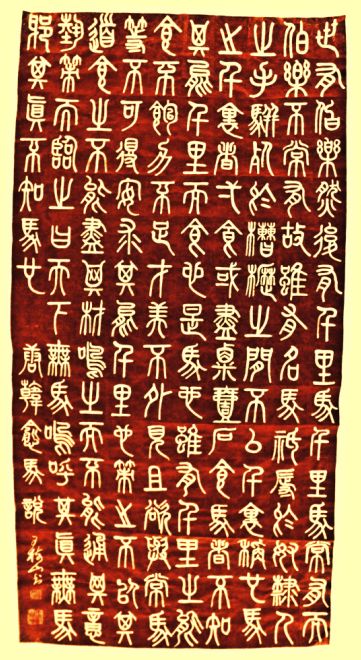 世有伯樂然後有千里馬千里馬常有而
伯樂不常有故雖有名馬祗辱於奴隸人
之手駢死於槽櫪之間不以千里稱也馬
之千里者一食或盡粟壹石食馬者不知
其能千里而食也是馬也雖有千里之能
食不飽力不足才美不外見且欲與常馬
等不可得安求其能千里也策之不以其
道食之不能盡其材鳴之而不能通其意
執策而臨之曰天下無馬嗚呼其真無馬
邪其真不知馬也 唐韓愈馬說